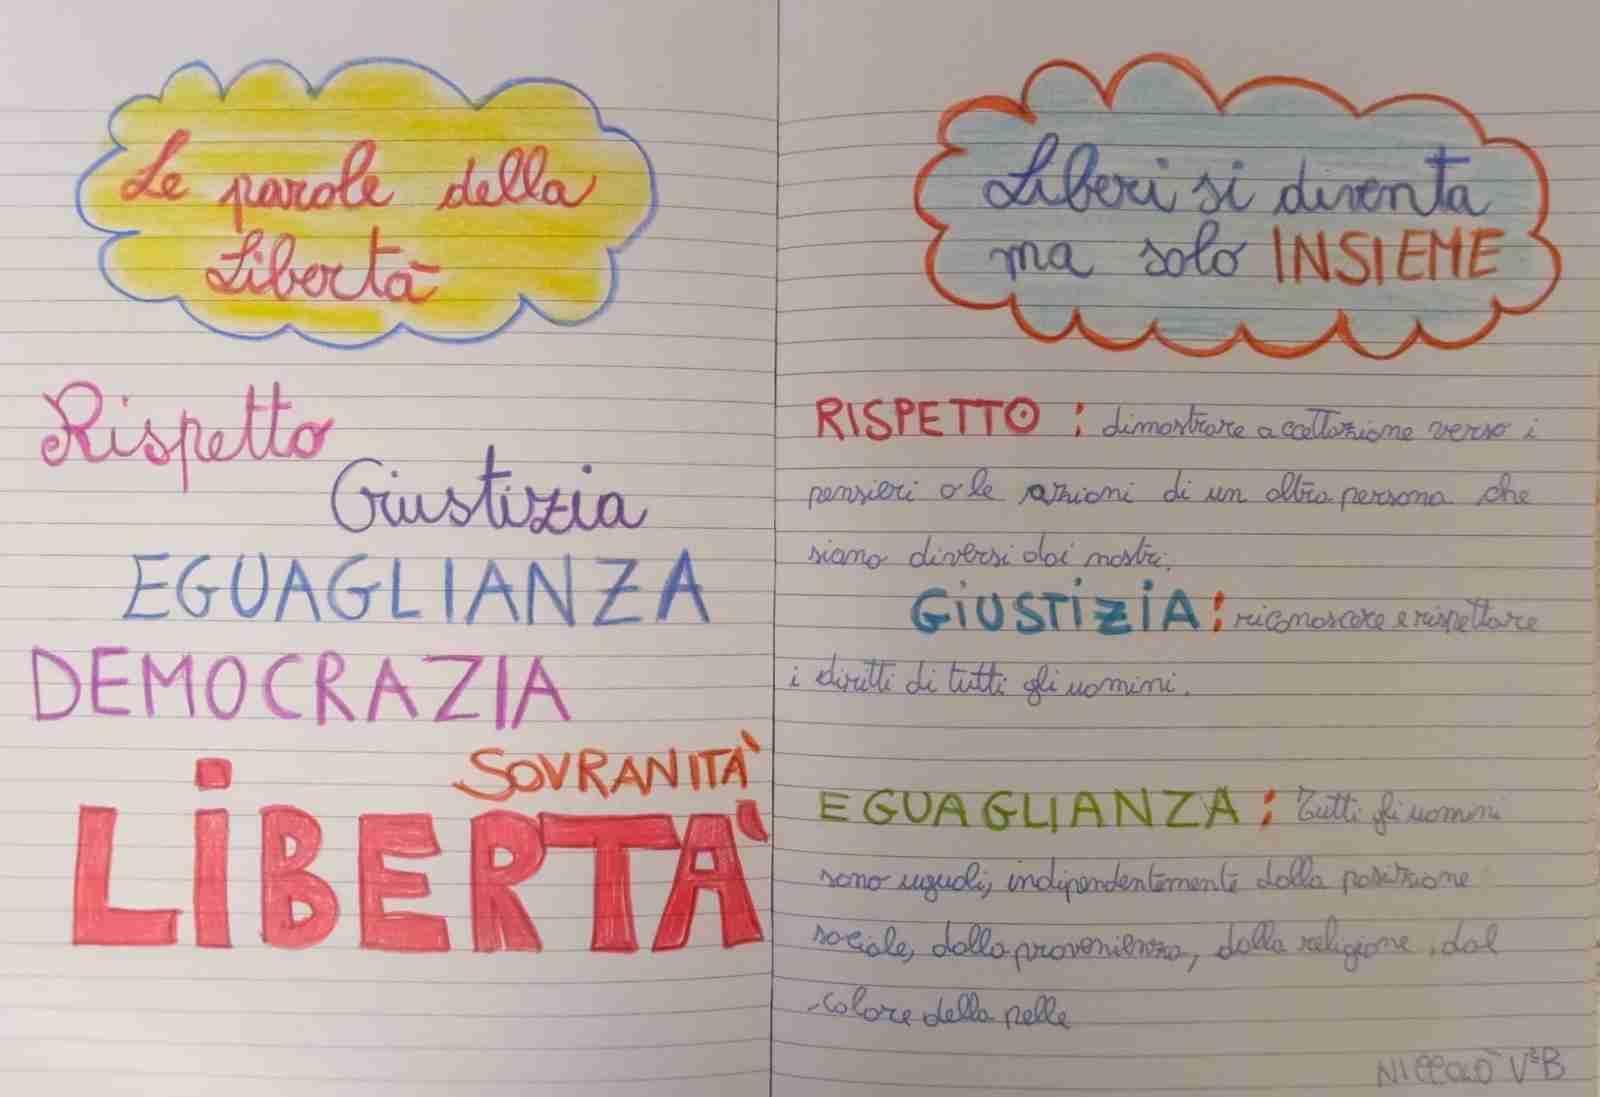 Le parole della
Libertà
Rispetto
Giustizia
EGUAGLIANZA
DEMOCRAZIA
SOVRANITÀ
LIBERTÀ
Liberi si diventa
ma solo INSIEME
RISPETTO : dimostrare accettazione verso i
pensieri o le azioni di un altra persona che
siano diversi dai nostri.
GIUSTIZIA : riconoscere e rispettare
i diritti di tutti gli uomini.
EGUAGLIANZA : Tutti gli uomini
sono uguali, indipendentemente dalla posizione
sociale, dalla provenienza, dalla religione, dal
colore della pelle
NICCOLÒ VªB